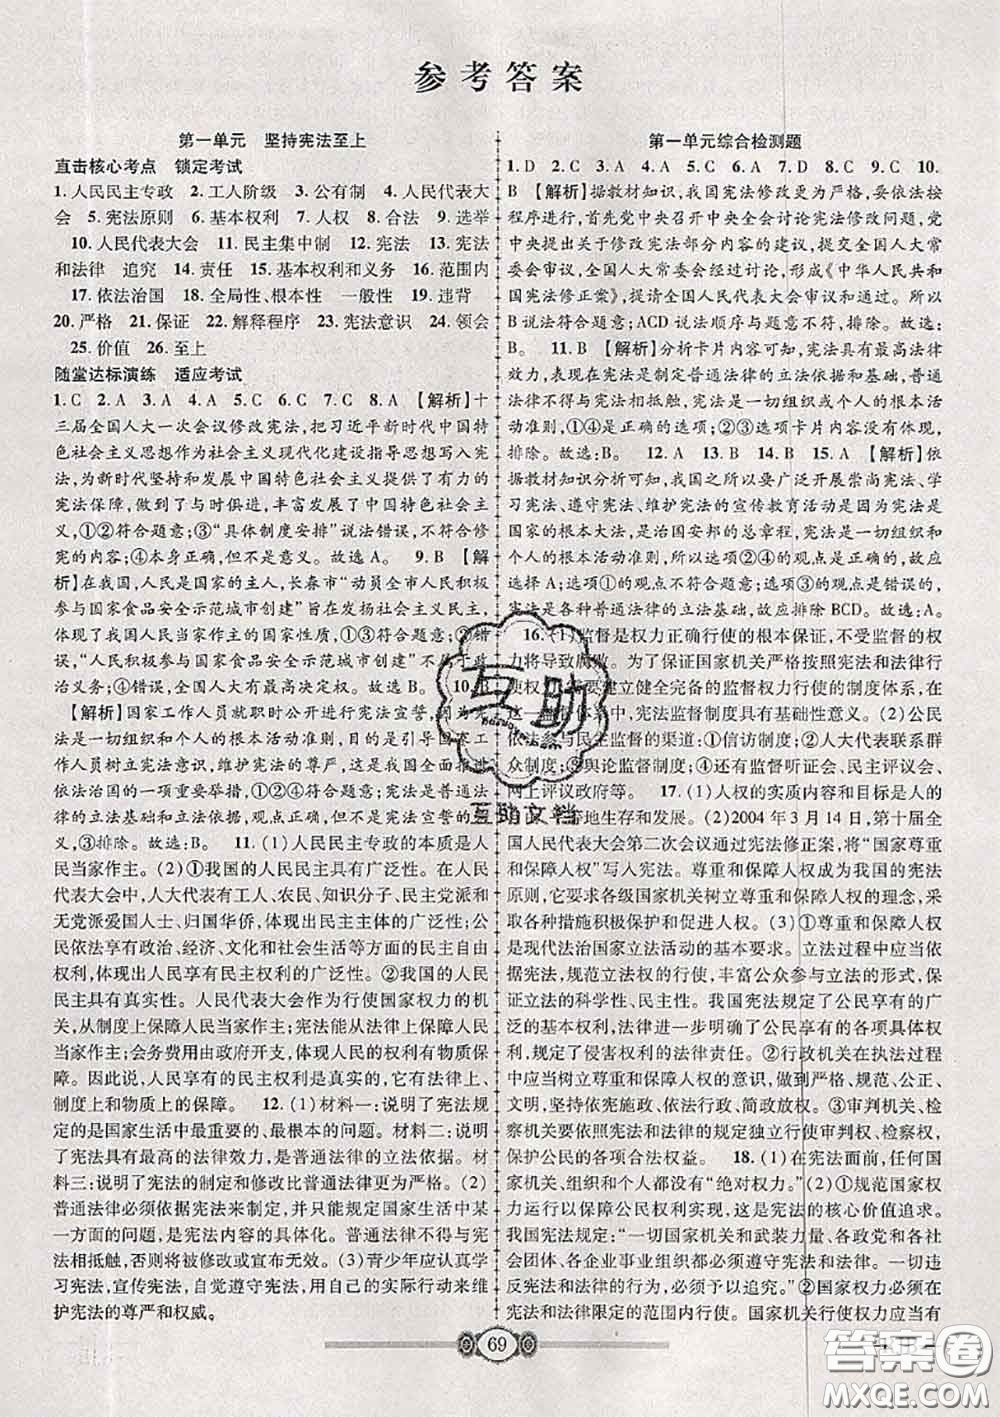 参考答案
第一单元　坚持宪法至上
直击核心考点　锁定考试
1. 人民民主专政　2. 工人阶级　3. 公有制　4. 人民代表大
会　5. 宪法原则　6. 基本权利　7. 人权　8. 合法　9. 选举
10. 人民代表大会　11. 民主集中制　12. 宪法　13. 宪法
和法律　追究　14. 责任　15. 基本权利和义务　16. 范围内
17. 依法治国　18. 全局性、根本性　一般性　19. 违背
20. 严格　21. 保证　22. 解释程序　23. 宪法意识　24. 领会
25. 价值　26. 至上
随堂达标演练　适应考试
1. C　2. A　3. A　4. A　5. C　6. C　7. C　8. A　【解析】十
三届全国人大一次会议修改宪法，把习近平新时代中国特
色社会主义思想作为社会主义现代化建设指导思想载入宪
法，为新时代坚持和发展中国特色社会主义提供了有力的
宪法保障，做到了与时俱进，丰富发展了中国特色社会主义
宪法制度，①②符合题意；③“具体制度安排”说法错误，不符合修
宪的内容；④本身正确，但不是意义。故选 A。　9. B　【解
析】在我国，人民是国家的主人，长春市“动员全市人民积极
参与国家食品安全示范城市创建”旨在发扬社会主义民主，
体现了我国人民当家作主的国家性质，①③符合题意；②错
误，“人民积极参与国家食品安全示范城市创建”不属于政
治义务；④错误，全国人大有最高决定权。故选 B。　10. B
【解析】国家工作人员就职时公开进行宪法宣誓，因为宪
法是一切组织和个人的根本活动准则，目的是引导国家工
作人员树立宪法意识，维护宪法的尊严，这是我国全面推进
依法治国的一项重要举措，②④符合题意；宪法是国家法制
的立法基础和立法依据，但不是进行国家宪法宣誓的意
义，③排除。故选 B。　11. (1)人民民主专政的本质是人民
当家作主。(2)①我国的人民民主具有广泛性。在人民
代表大会中，大代表有工人、农民、知识分子、民主党派和
无党派爱国人士、归国华侨，体现出民主主体的广泛性；公
民依法享有政治、经济、文化和社会生活等方面的民主自由
权利，体现出人民享有民主权利的广泛性。②我国的人民
民主具有真实性。人民代表大会作为行使国家权力的机
关，从制度上保障人民当家作主；宪法能从法律上保障人民
当家作主；会务费用由政府开支，体现人民的权利有物质保
障。因此说，人民享有的民主权利是真实的，它有法律上、
制度上和物质上的保障。　12. (1)材料一：说明了宪法规
定的是国家生活中最重要的、最根本的问题。材料二：说明
了宪法具有最高的法律效力，是普通法律的立法依据。材
料三：说明了宪法的制定和修改比普通法律更严格。(2)
普通法律必须依据宪法来制定，并只能规定国家生活中某
一方面的问题，是宪法内容的具体化。普通法律不得与宪
法相抵触，否则将被修改或宣布无效。(3)青少年应认真学
习宪法，宣传宪法，自觉遵守宪法，用自己的实际行动来维
护宪法的尊严和权威。
第一单元综合检测题
1. D　2. C　3. A　4. B　5. A　6. D　7. B　8. C　9. C　10.
B　【解析】据教材知识，我国宪法修改更为严格，要依法按
程序进行，首先党中央召开中央全会讨论宪法修改问题，党
中央提出关于修改宪法部分内容的建议，提交全国人大常
委会审议，全国人大常委会经过讨论，形成《中华人民共和
国宪法修正案》，提请全国人民代表大会审议和通过。所以
B 说法符合题意；ACD 说法顺序与题意不符，排除。故选：
B。　11. B　【解析】分析卡片内容可知，宪法具有最高法律
效力，表现在宪法是制定普通法律的立法依据和基础，普通
法律不得与宪法相抵触，宪法是一切组织或个人的根本活
动准则，①④是正确的选项；②③选项卡片内容没有体现，
排除。故选：B。　12. A　13. B　14. B　15. A　【解析】根据
教材知识分析可知，我国之所以要广泛开展崇尚宪法、学
习宪法、遵守宪法、维护宪法的宣传教育活动是因为宪法是
国家的根本大法，是治国安邦的总章程，宪法是一切组织和
个人的根本活动准则，所以选项②④的观点是正确的，故应
选择 A；选项①的观点不符合题意；选项③的观点是错误的，
宪法是各种普通法律的立法基础，故应排除 BCD。故选：A。
16. (1)监督是权力正确行使的根本保证，不受监督的权
力将导致腐败。为了保证国家机关严格按照宪法和法律行
使权力，需要建立健全完备的监督权力行使的制度体系，在
这一监督体系中，宪法监督制度具有基础性意义。(2)公民
依法参与民主监督的渠道：①信访制度；②人大代表联系群
众制度；③舆论监督制度；④还有监督听证会、民主评议会、
网上评议政府等。　17. (1)人权的实质内容和目标是人的
自由、平等地生存和发展。(2)2004 年 3 月 14 日，第十届全
国人民代表大会第二次会议通过宪法修正案，将“国家尊重
和保障人权”写入宪法。尊重和保障人权成为我国的宪法
原则，它要求各级国家机关树立尊重和保障人权的意识，采
取各种措施积极保护和促进人权。(3)①尊重和保障人权
是现代法治国家立法活动的基本要求。立法过程中应当依
据宪法，规范立法权的行使，丰富公众参与立法的形式，保
证立法的科学性、民主性。我国宪法规定了公民享有的广
泛的基本权利，法律进一步规定了公民享有的各项具体权
利，规定了侵害权利的法律责任。②行政机关在执法过程
中应当树立尊重和保障人权的意识，做到严格、规范、公正、
文明，坚持依宪施政、依法行政、简政放权。③审判机关、检
察机关要依照宪法和法律的规定独立行使审判权、检察权，
保护公民的各项合法权益。　18. (1)在宪法面前，任何国
家机关、组织和个人都没有“绝对权力。”(2)①规范国家权
力运行以保障公民权利实现，这是宪法的核心价值追求。
我国宪法规定：“一切国家机关和武装力量、各政党和各社
会团体、各企业事业组织都必须遵守宪法和法律。一切违
反宪法和法律的行为，必须予以追究。”②国家权力必须在
宪法和法律限定的范围内行使。国家机关行使权力应当有
69
互助
互助文档
答案圈
MXQE.COM